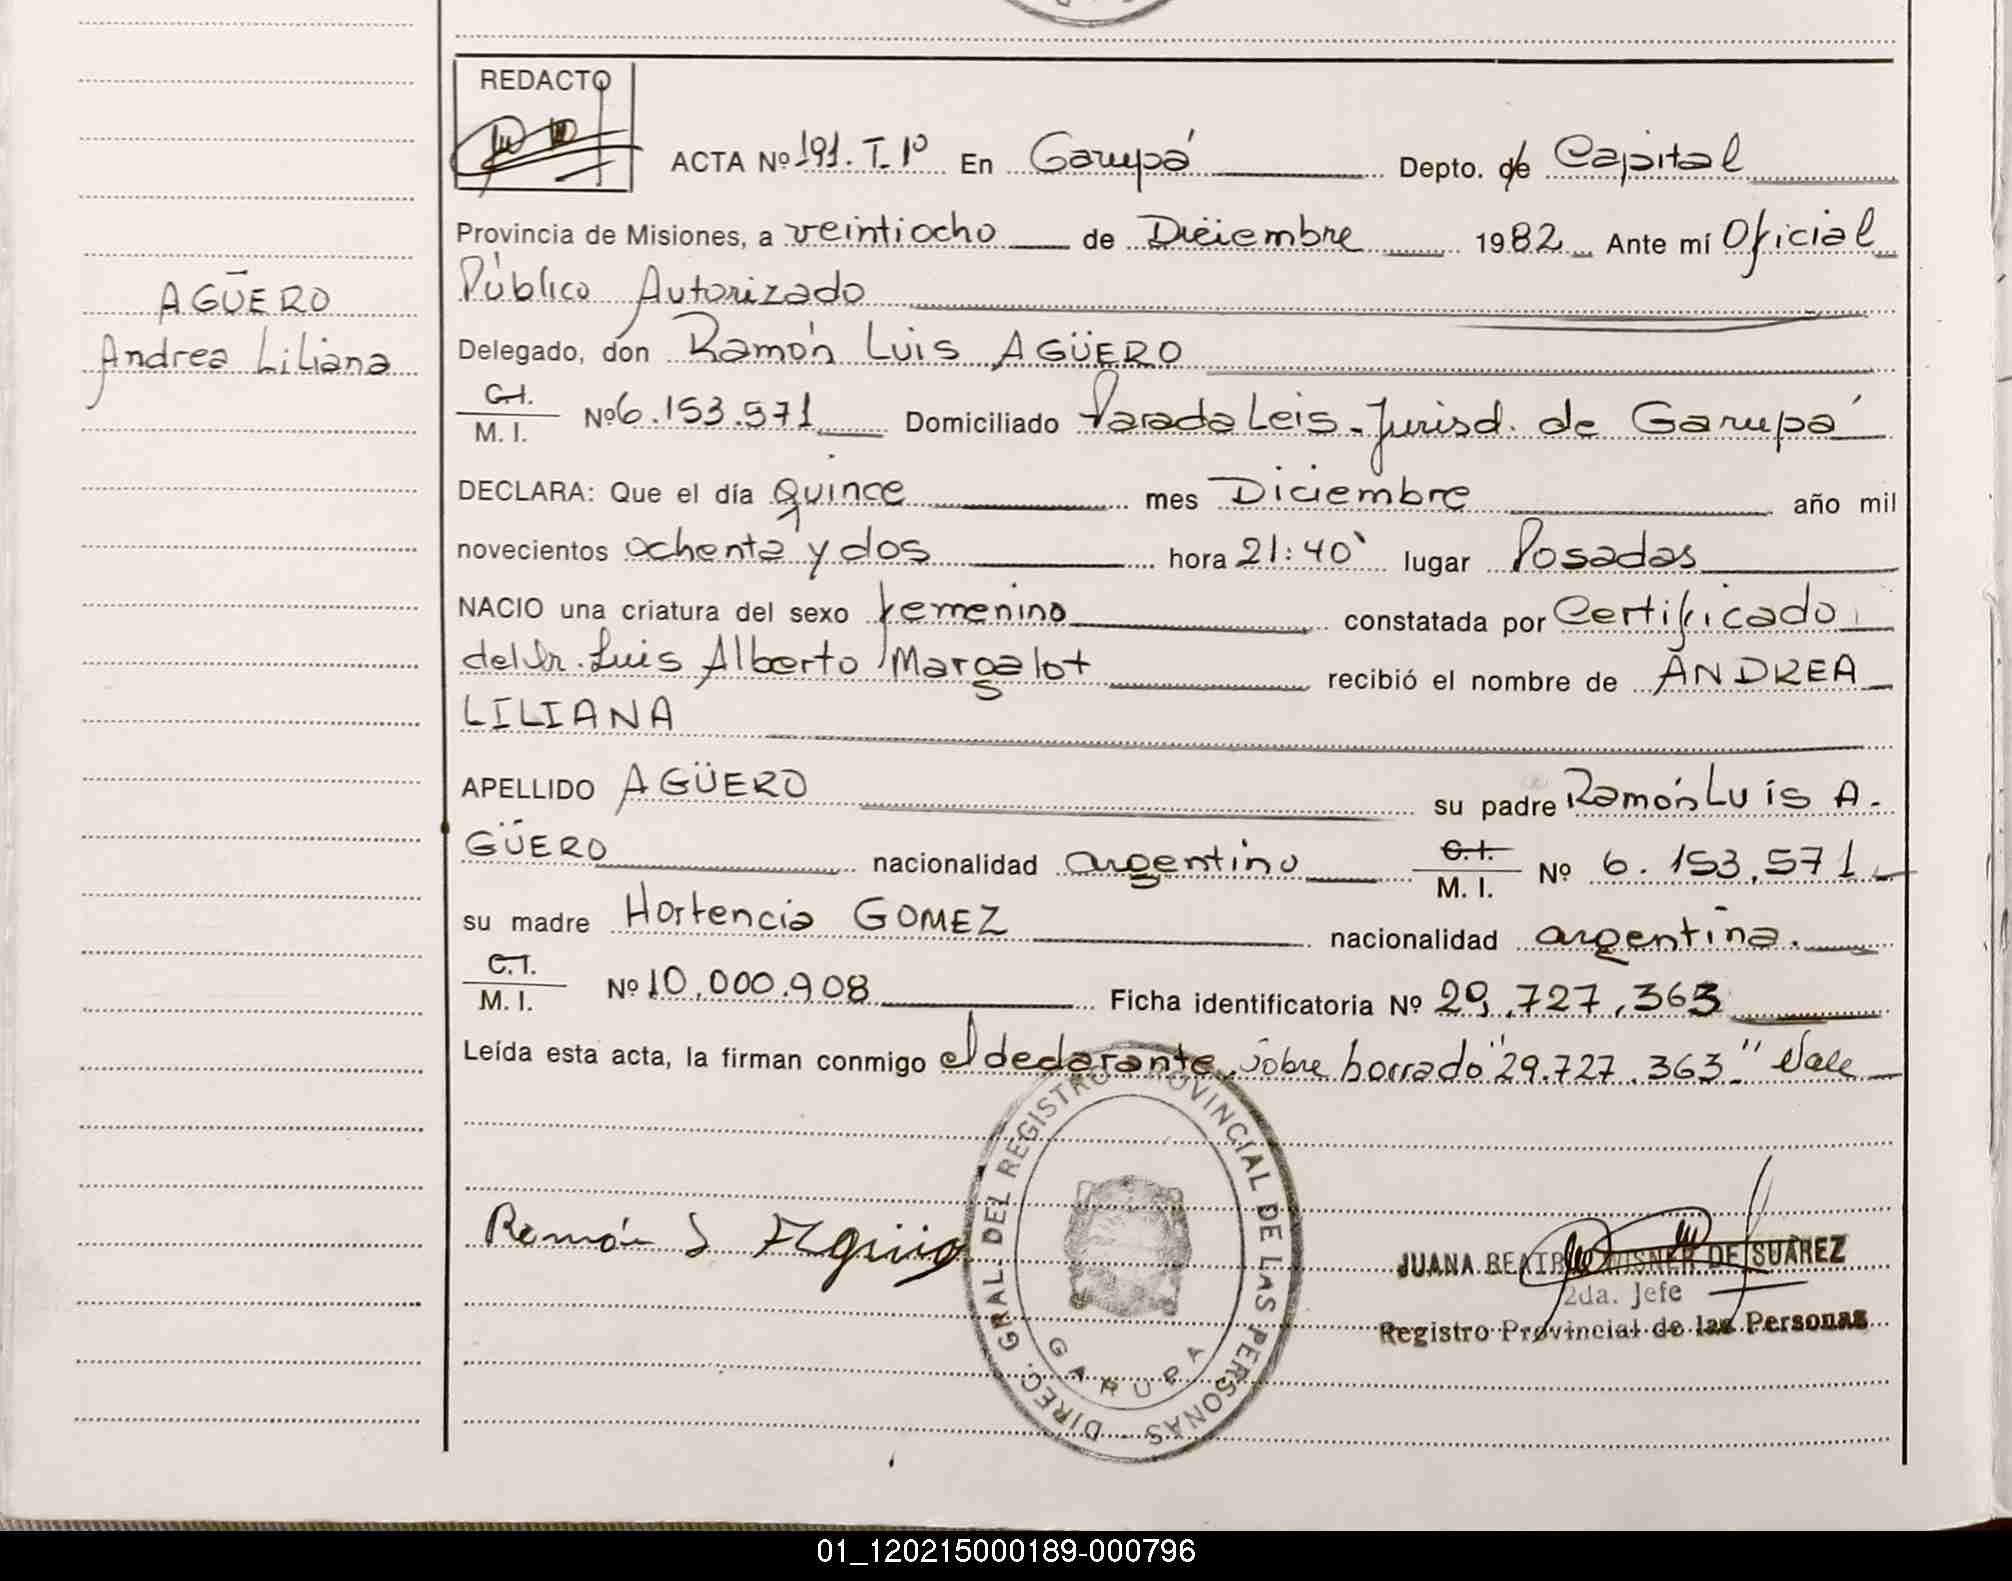 REDACTO
ACTA Nº 191. T. 1º En Garupá Depto. de Capital
Provincia de Misiones, a veintiocho de Diciembre 1982 Ante mí Oficial
Público Autorizado
AGÜERO
Andrea Liliana
Delegado, don Ramón Luis AGÜERO
C.I.
M. I. Nº 6.153.571 Domiciliado Parada Leis - Jurisd. de Garupá
DECLARA: Que el día Quince mes Diciembre año mil
novecientos ochenta y dos hora 21:40` lugar Posadas
NACIO una criatura del sexo femenino constatada por Certificado
del Dr. Luis Alberto Margalot recibió el nombre de ANDREA
LILIANA
APELLIDO AGÜERO su padre Ramón Luis A-
GÜERO nacionalidad argentino C.I. M. I. Nº 6.153.571
su madre Hortencia GOMEZ nacionalidad argentina.
C.I.
M. I. Nº 10.000.908 Ficha identificatoria Nº 29.727.363
Leída esta acta, la firman conmigo el declarante, sobre borrado "29.727.363" Vale
DIREC. GRAL. DEL REGISTRO PROVINCIAL DE LAS PERSONAS
GARUPA
Ramón L Agüero
JUANA BEATRIZ DE SUAREZ
2da. Jefe
Registro Provincial de las Personas
01_120215000189-000796